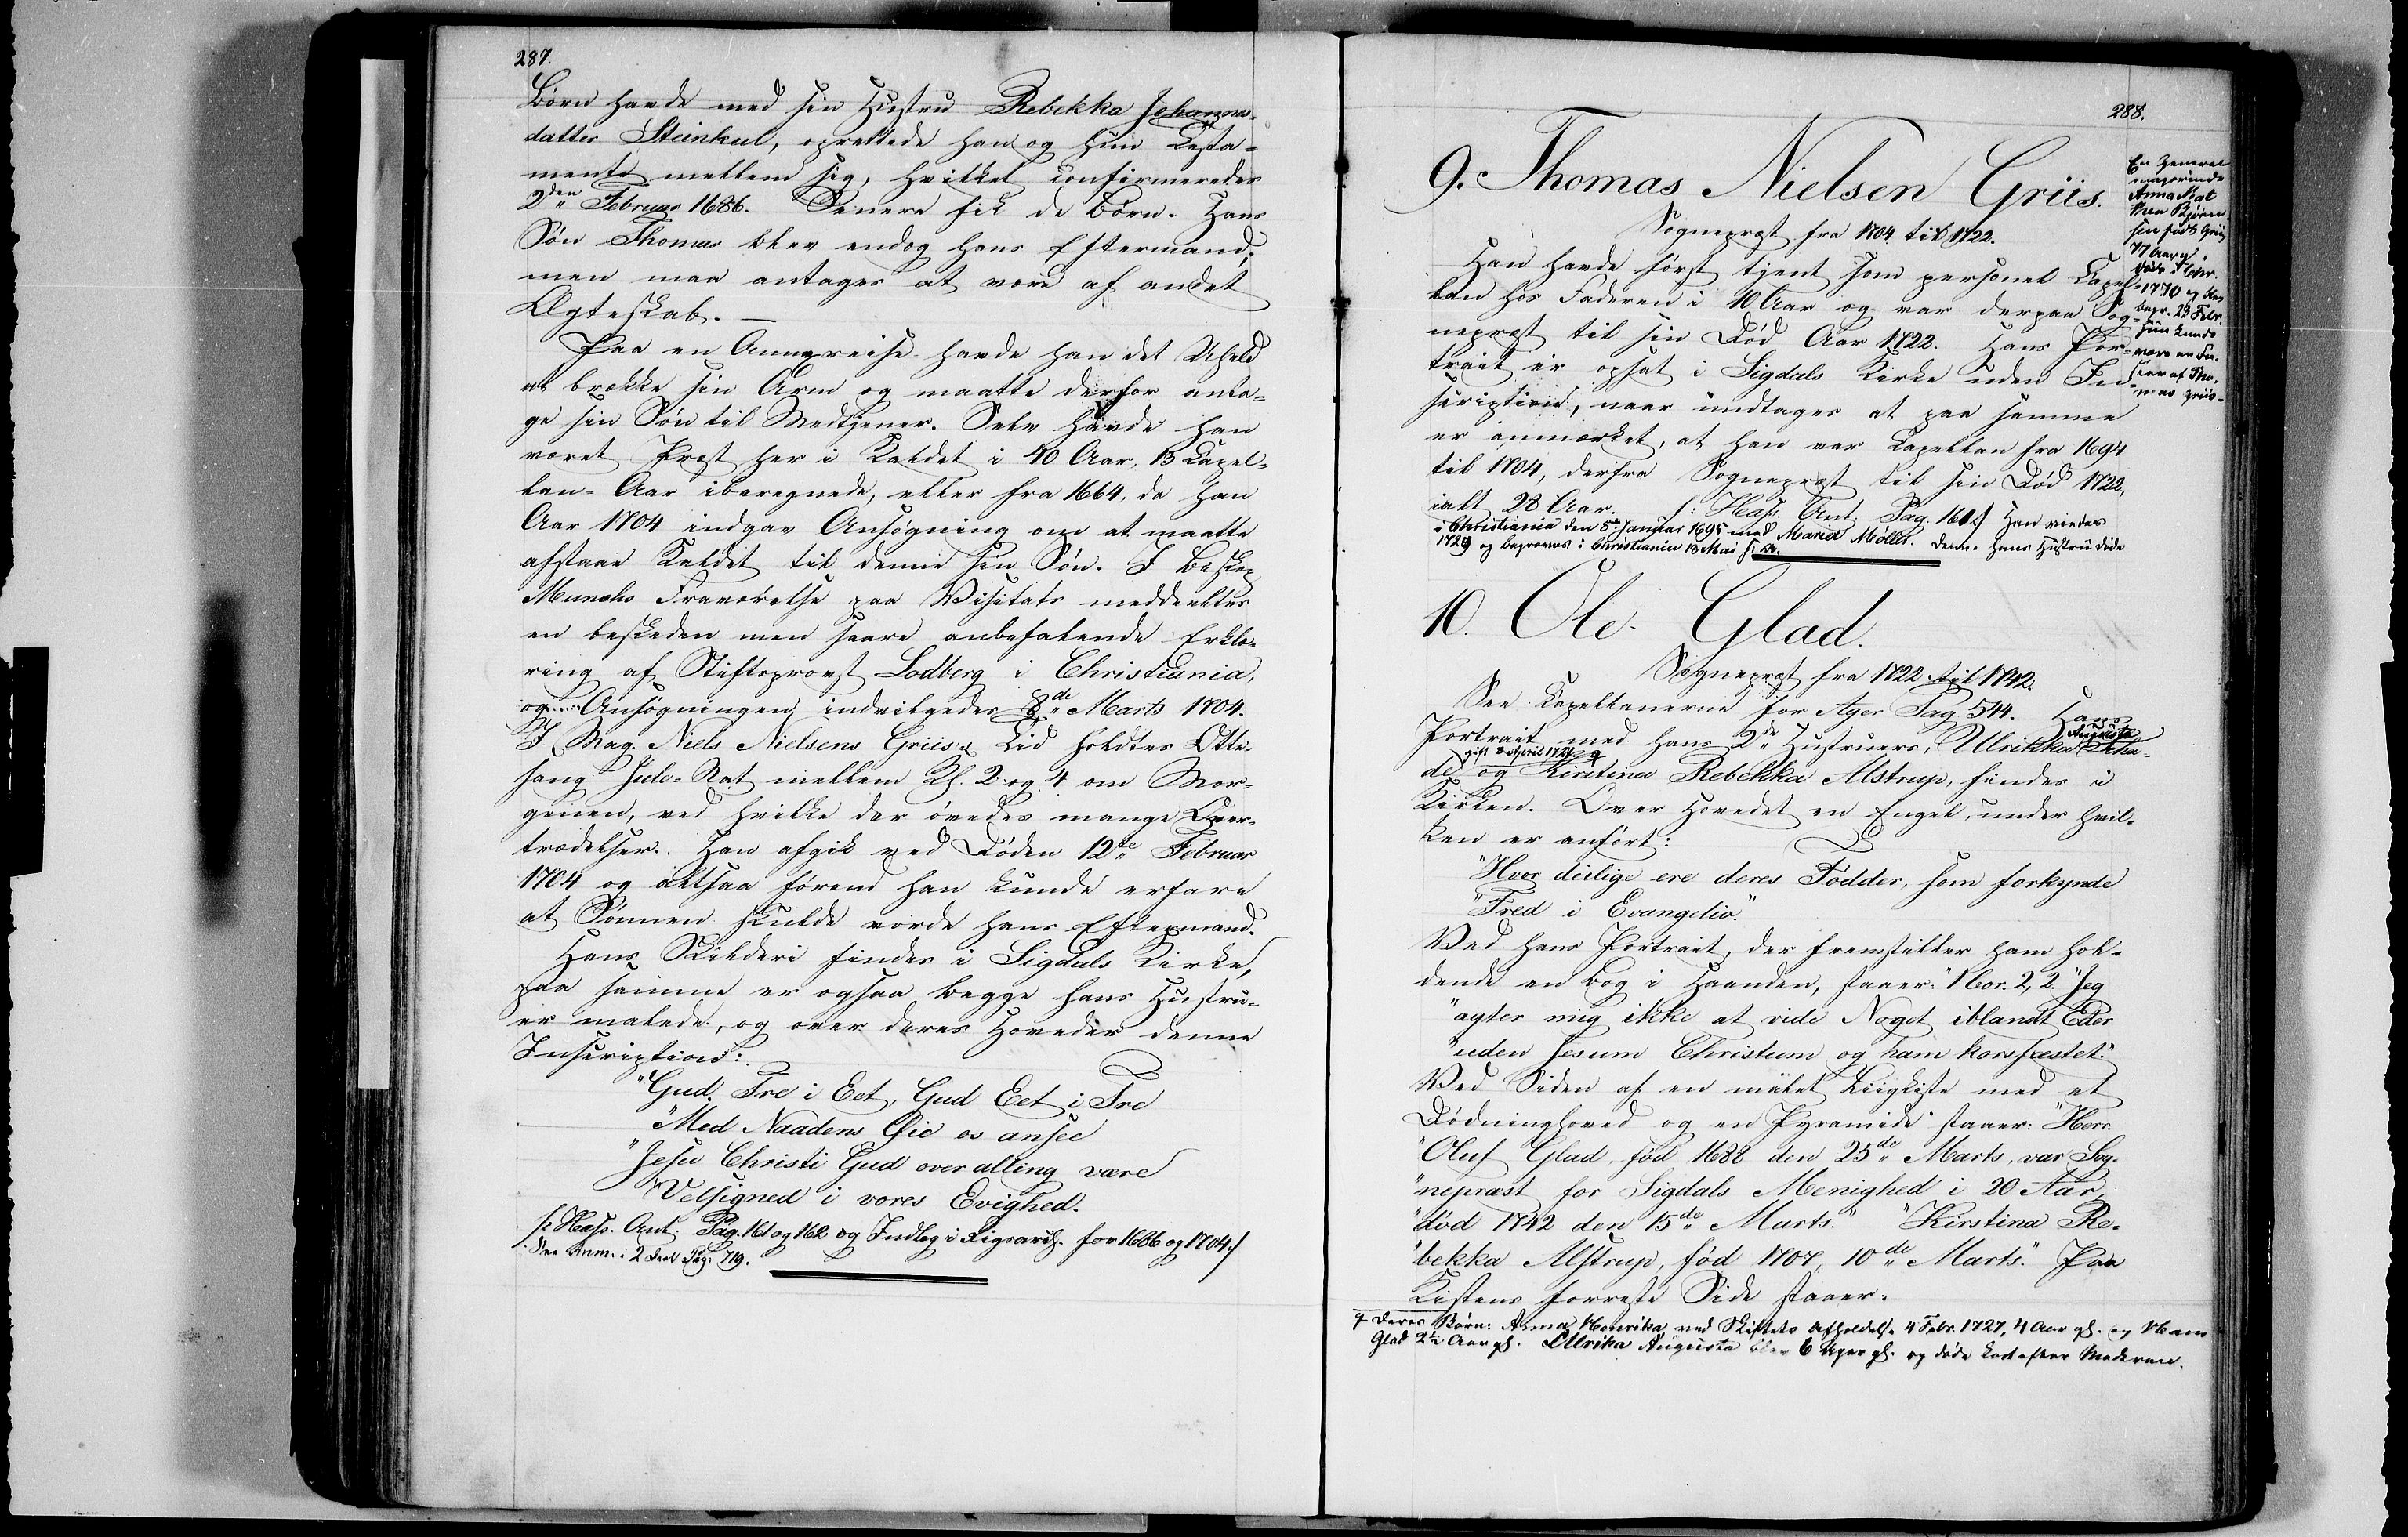 287.
Børn havde med sin Hustru Rebekka Johannes-
datter Steinkul, oprettede han og hun Testa-
mente mellem sig, hvilket confirmeredes
2den Februar 1686. Senere fik de Børn. Hans
Søn Thomas blev endog hans Eftermand,
men maa antages at være af andet
Ægteskab. —
Paa en Annexreise havde han det Uheld
at brække sin Arm og maatte derfor anta-
ge sin Søn til Medtjener. Selv havde han
været Præst her i Kaldet i 40 Aar, 13 Capel-
lan-Aar iberegnede, eller fra 1664, da han
Aar 1704 indgav Ansøgning om at maatte
afstaae Kaldet til denne sin Søn. I Biskop
Munchs Fraværelse paa Visitats meddeeltes
en beskeden men saare anbefalende Erklæ-
ring af Stiftsprovst Lodberg i Christiania,
og Ansøgningen indvilgedes 8de Marts 1704.
I Mag. Niels Nielsens Griis's Tid holdtes Otte-
sang Jule-Nat mellem Kl. 2 og 4 om Mor-
genen, ved hvilke der øvedes mange Over-
trædelser. Han afgik ved Døden 12te Februar
1704 og altsaa førend han kunde erfare
at Sønnen skulde vorde hans Eftermand.
Hans Skilderi findes i Sigdals Kirke,
paa samme er ogsaa begge hans Hustru-
er malede, og over deres Hoveder denne
Inscription:
"Gud Tre i Eet, Gud Eet i Tre
"Med Naadens Øie os ansee
"Jesu Christi Gud over alting være
"Velsigned i vores Evighed.
/: Hass. Ant. Pag. 161 og 162 og Indlæg i Rigsarch. for 1686 og 1704 :/
See Anm. i 2 Deel Pag. 719.
288.
9. Thomas Nielsen Griis.
Sognepræst fra 1704 til 1722.
Han havde først tjent som personel Capel-
lan hos Faderen i 10 Aar og var derpaa Sog-
nepræst til sin Død Aar 1722. Hans Por-
trait er opsat i Sigdals Kirke uden In-
scription, naar undtages at paa samme
er anmærket, at han var Capellan fra 1694
til 1704, derfra Sognepræst til sin Død 1722,
ialt 28 Aar. /: Hass. Ant. Pag. 161 :/ Han viedes
i Christiania den 5te Januar 1695 med Maria Møller. Denne hans Hustru døde
1729 og begravedes i Christiania 13 Mai s. A.
En General
majorinde
Anna Mar
thea Bjørn-
sen født Griis
77 Aar gl.
døde i Febr.
1770 og blev
begr. 23 Febr.
Hun kunde
være en Da-
tter af Tho-
mas Griis.
10. Ole Glad.
Sognepræst fra 1722 til 1742.
See Capellanerne for Ager Pag. 544. Hans
Portrait med hans 2de Hustruers, Ulrikka Augusta Scha-
gift 3 April 1727
de og Kirstina Rebekka Alstrup, findes i
Kirken. Over Hovedet en Engel, under hvil-
ken er anført:
"Hvor deilige ere deres Fødder, som forkynde
"Fred i Evangelio."
Ved hans Portrait, der fremstiller ham hol-
dende en Bog i Haanden, staaer: "1 Cor. 2, 2. "Jeg
"agter mig ikke at vide Noget iblandt Eder
"uden Jesum Christum og ham korsfæstet."
Ved Siden af en malet Liigkiste med et
Dødninghoved og en Pyramide staaer: "Herr.
"Oluf Glad, fød 1688 den 25de Marts, var Sog-
"nepræst for Sigdals Menighed i 20 Aar,
"død 1742 den 15de Marts." "Kirstina Re-
"bekka Alstrup, fød 1707, 10de Marts." Paa
Kistens forreste Side staaer:
Deres Børn: Anna Henrika ved Skiftets Afholdelse 4 Febr. 1727, 4 Aar gl. og Hans
Glad 2½ Aar gl. Ulrika Augusta 6 Uger gl. og døde kort efter Moderen.